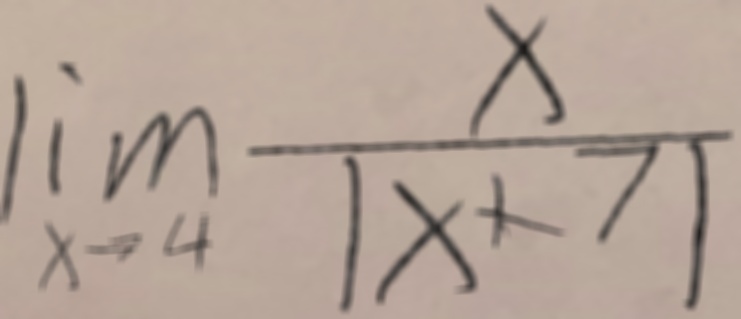 lim x→4 x / |x + 7|